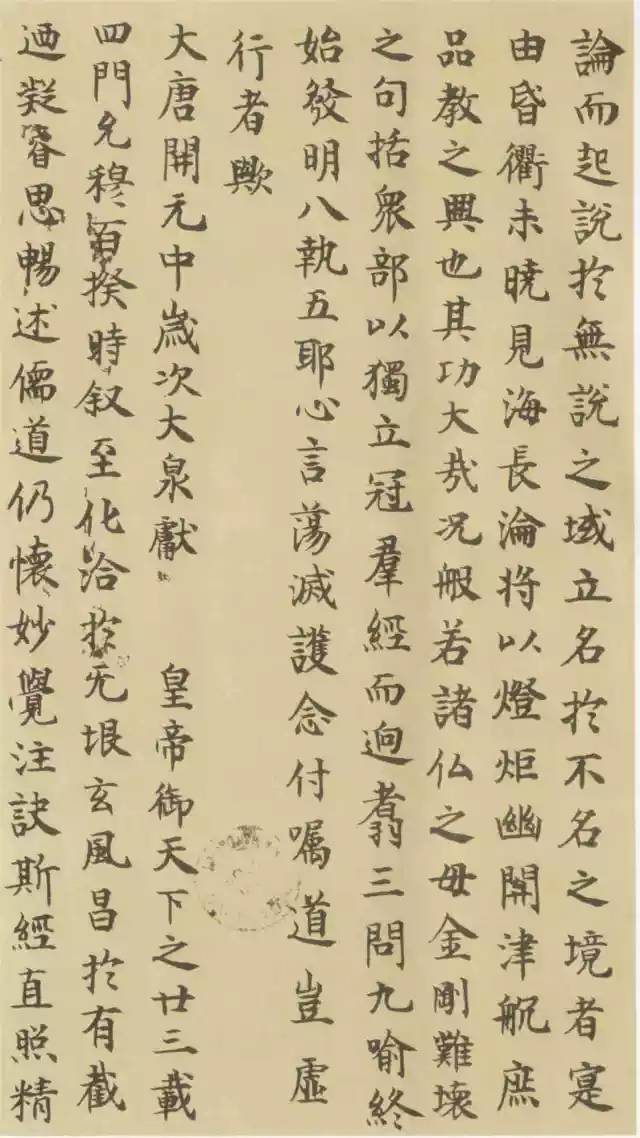 論而起說於無說之域立名於不名之境者寔
由昏衢未曉見海長淪將以燈炬幽開津航庶
品教之興也其功大哉况般若諸仏之母金剛難壞
之句括衆部以獨立冠羣經而迥翥三問九喻終
始發明八執五耶心言蕩滅護念付囑道豈虛
行者歟
大唐開元中歲次大泉獻 皇帝御天下之廿三載
四門允穆百揆時叙至化洽於无垠玄風昌於有截
迺凝睿思暢述儒道仍懷妙覺注訣斯經直照精